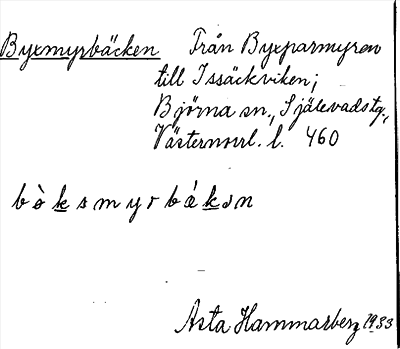 Byxmyrbäcken Från Byxparmyren
till Issäckviken;
Björna sn., Själevadstg.,
Västernorrl. l. 460
bò̀ksmyrbákən
Asta Hammarberg 1933